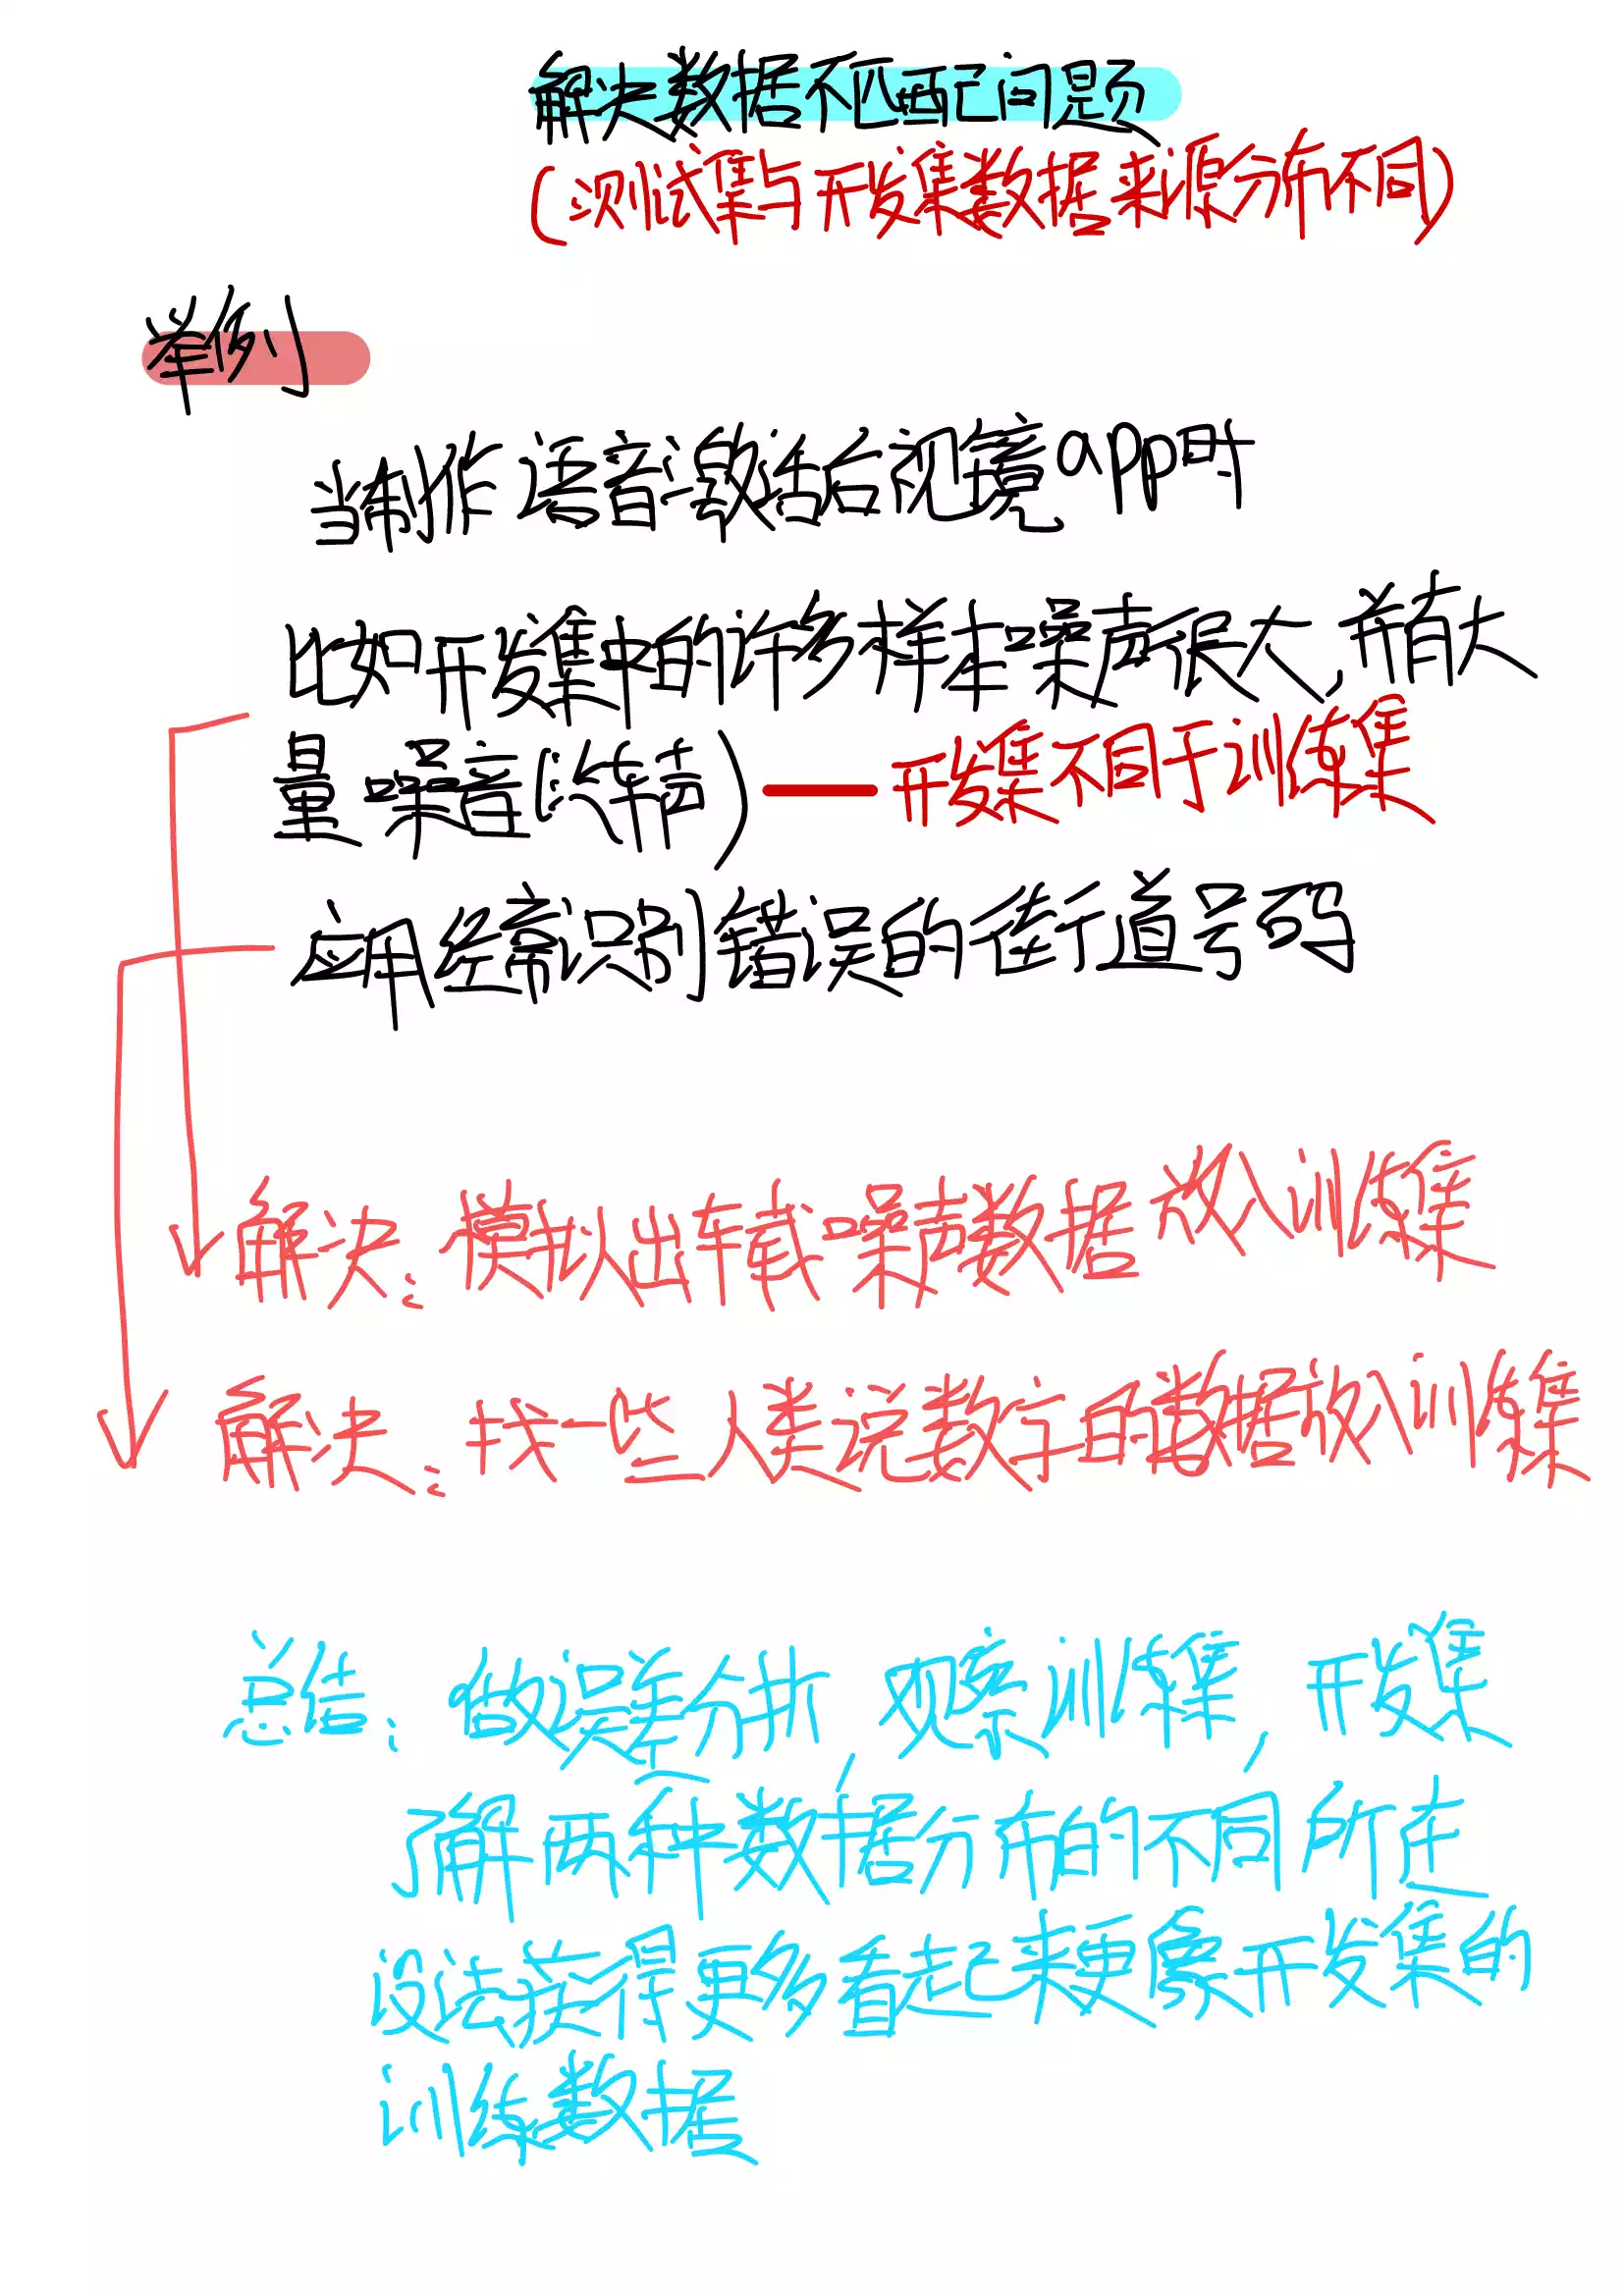 解决数据不匹配问题
(测试集与开发集数据来源分布不同)
举例
当制作语音激活后视镜app时
比如开发集中的许多样本噪声很大,并有大
量噪音(汽车声)——开发集不同于训练集
应用经常识别错误的街道号码
解决:模拟出车载噪声数据放入训练集
解决:找一些人类说数字的数据放入训练集
总结:做误差分析,观察训练集,开发集
了解两种数据分布的不同所在
设法获得更多看起来更像开发集的
训练数据